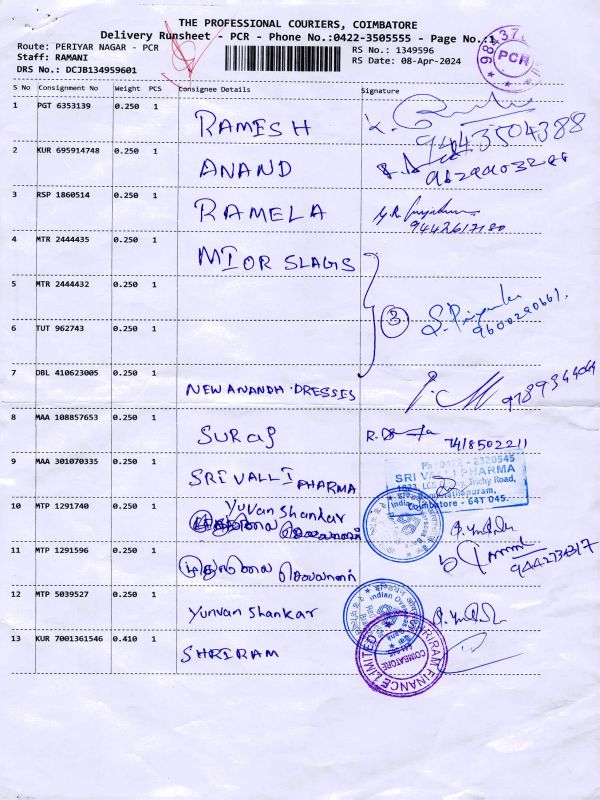 THE PROFESSIONAL COURIERS, COIMBATORE
Delivery Runsheet - PCR - Phone No.:0422-3505555 - Page No.:1
Route: PERIYAR NAGAR - PCR
Staff: RAMANI
DRS No.: DCJB134959601
RS No.: 1349596
RS Date: 08-Apr-2024
PCR
S No Consignment No Weight PCS Consignee Details Signature
1 PGT 6353139 0.250 1 RAMESH 9443504388
2 KUR 695914748 0.250 1 ANAND
3 RSP 1860514 0.250 1 RAMELA 9442617180
4 MTR 2444435 0.250 1 MIOR SLAGIS
5 MTR 2444432 0.250 1
3 S. Priyanka
9600290661.
6 TUT 962743 0.250 1
7 DBL 410623005 0.250 1 NEW ANANDH DRESSES
8 MAA 108857653 0.250 1 SURAJ 7418502211
9 MAA 301070335 0.250 1 SRI VALLI PHARMA
Ph : 0422 - 2320545
SRI VALLI PHARMA
Trichy Road,
Ramanathapuram,
Coimbatore - 641 045.
10 MTP 1291740 0.250 1 Yuvan Shankar
Indian Overseas Bank
11 MTP 1291596 0.250 1
12 MTP 5039527 0.250 1 Yunvan Shankar
Indian Overseas Bank
13 KUR 7001361546 0.410 1 SHRIRAM
SHRIRAM FINANCE LIMITED
COIMBATORE
641 045